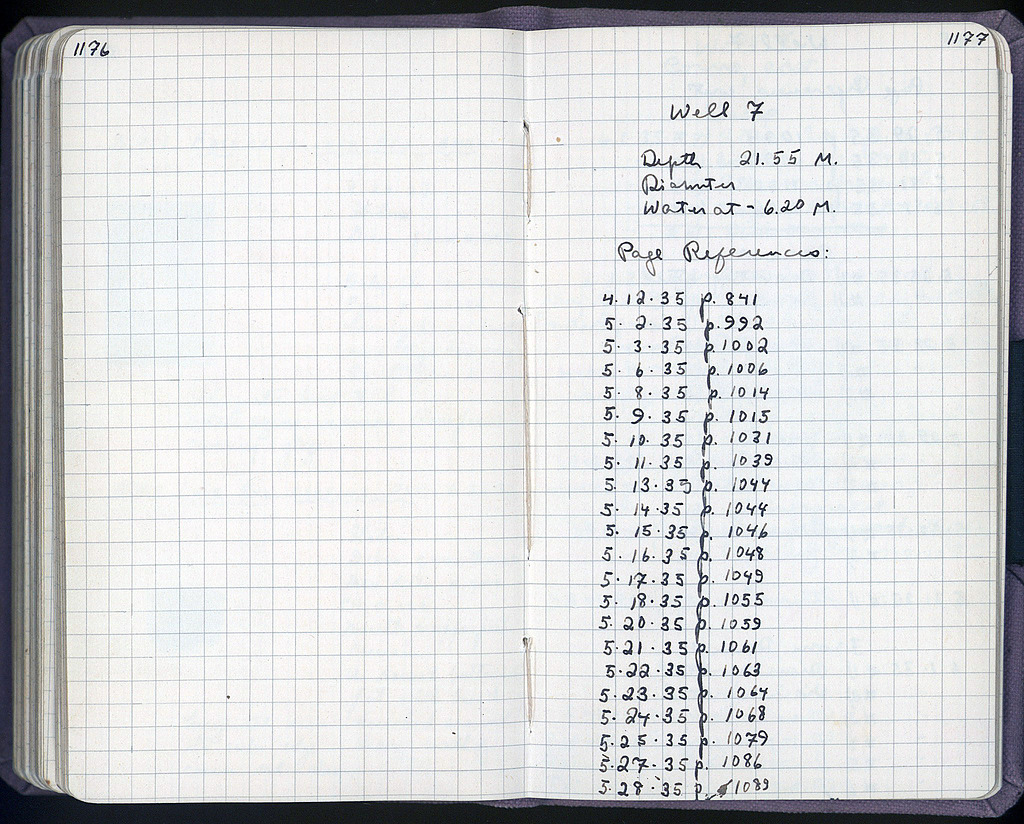 1176
1177
Well 7
Depth 21.55 M.
Diameter
Water at - 6.20 M.
Page References:
4.12.35 p. 841
5.2.35 p. 992
5.3.35 p. 1002
5.6.35 p. 1006
5.8.35 p. 1014
5.9.35 p. 1015
5.10.35 p. 1031
5.11.35 p. 1039
5.13.35 p. 1044
5.14.35 p. 1044
5.15.35 p. 1046
5.16.35 p. 1048
5.17.35 p. 1049
5.18.35 p. 1055
5.20.35 p. 1059
5.21.35 p. 1061
5.22.35 p. 1063
5.23.35 p. 1064
5.24.35 p. 1068
5.25.35 p. 1079
5.27.35 p. 1086
5.28.35 p. 1089